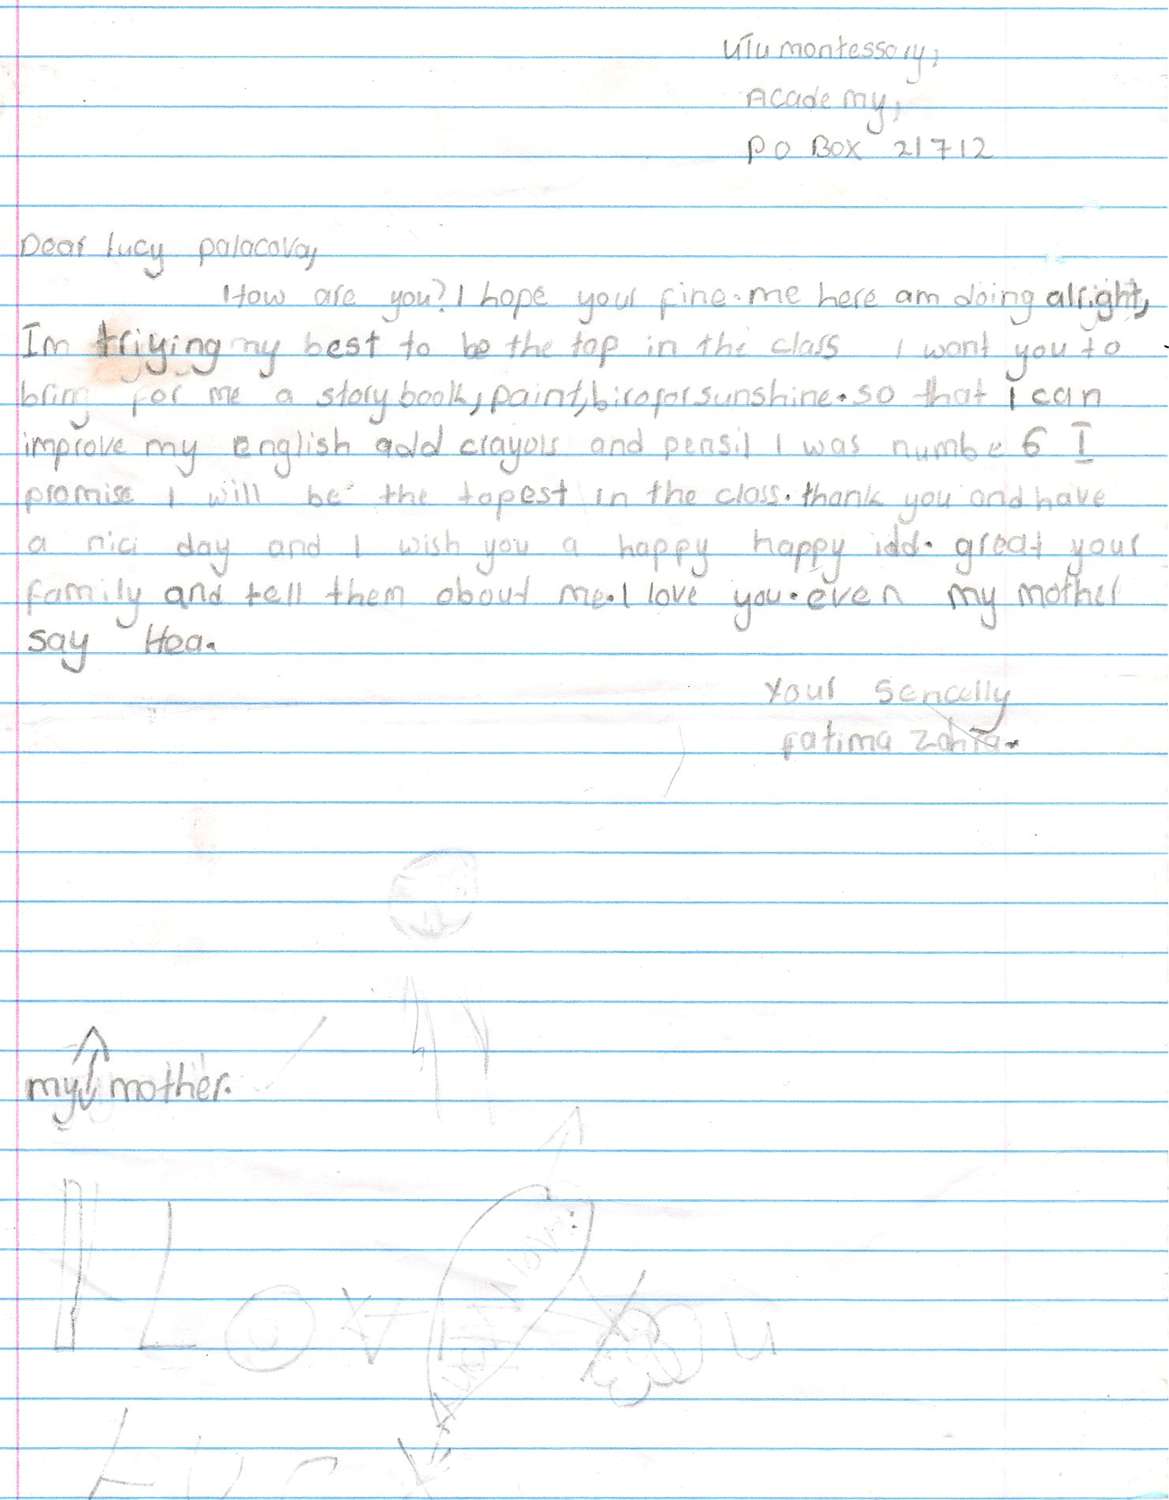 UTU montessory,
Academy,
PO BOX 21712
Dear lucy palacova,
How are you? I hope your fine. me here am doing alright,
Im trijying my best to be the top in the class I want you to
bring for me a story book, paint, biro for sunshine. so that I can
improve my english add crayols and pensil I was numbe 6 I
promise I will be the topest in the class. thank you and have
a nici day and I wish you a happy happy idd. great your
family and tell them about me. I love you. even my mother
say Hea.
your Sencelly
Fatima Zahra.
my mother.
I Lov you